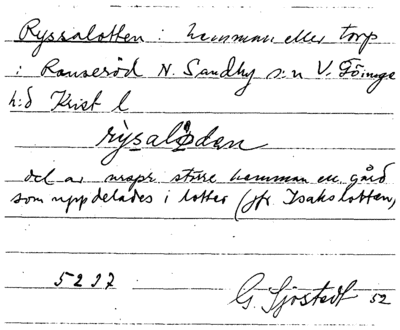 Ryssalotten: hemman eller torp
i Ranseröd N. Sandby s:n V. Göinge
h:d Krist l
rysalòdan
del av urspr större hemman el. gård
som uppdelades i lotter (jfr Isakslotten)
5237
G. Sjöstedt 52